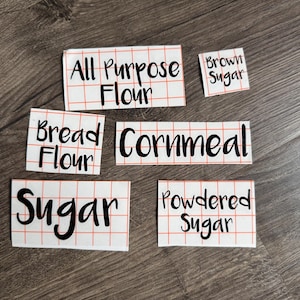 All Purpose
Flour
Brown
Sugar
Bread
Flour
Cornmeal
Sugar
Powdered
Sugar